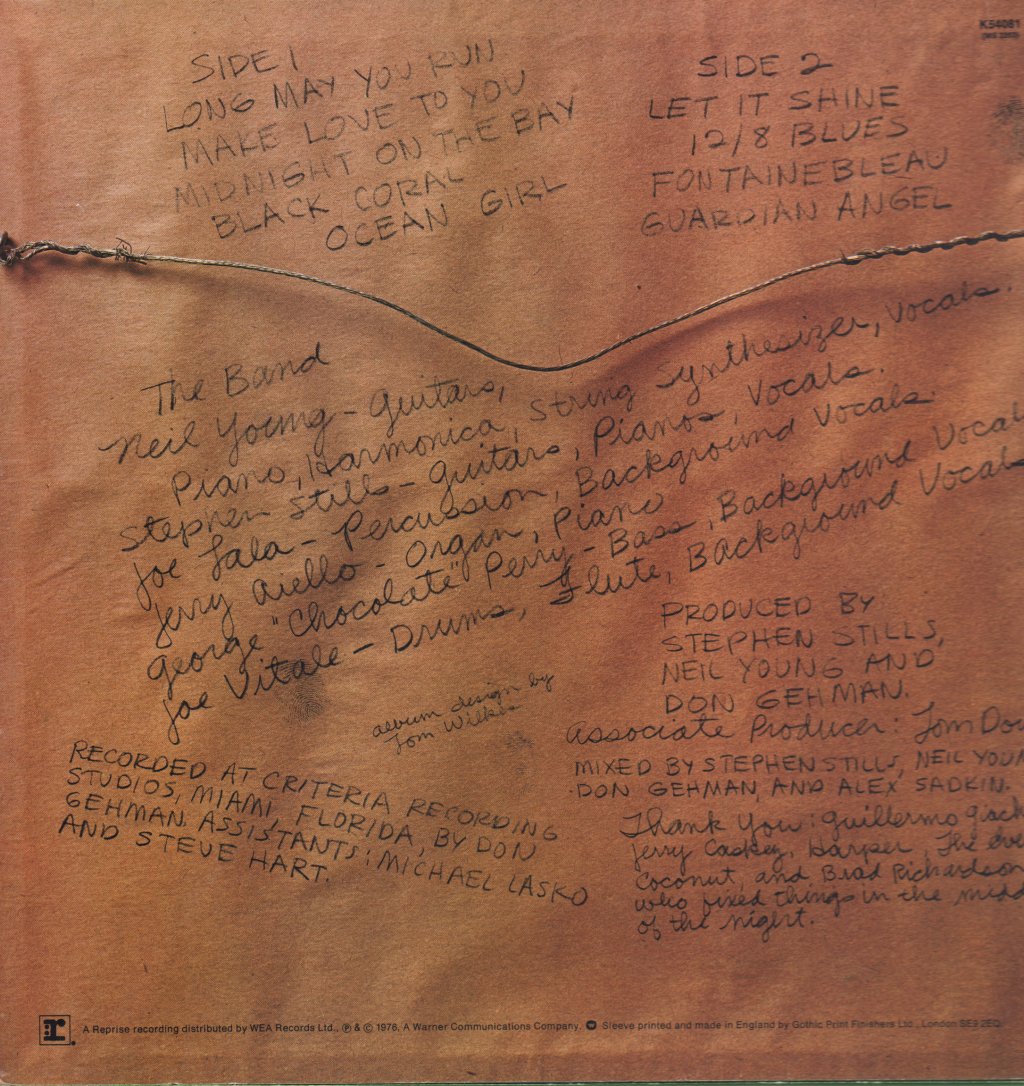 K54081
(MS 2253)
SIDE 1
LONG MAY YOU RUN
MAKE LOVE TO YOU
MIDNIGHT ON THE BAY
BLACK CORAL
OCEAN GIRL
SIDE 2
LET IT SHINE
12/8 BLUES
FONTAINEBLEAU
GUARDIAN ANGEL
The Band
Neil Young - Guitars,
Piano, Harmonica, String Synthesizer, Vocals.
Stephen Stills - Guitars, Pianos, Vocals.
Joe Lala - Percussion, Background Vocals.
Jerry Aiello - Organ, Piano
George "Chocolate" Perry - Bass, Background Vocal
Joe Vitale - Drums, Flute, Background Vocals
album design by
Tom Wilkes
PRODUCED BY
STEPHEN STILLS,
NEIL YOUNG AND
DON GEHMAN.
Associate Producer: Tom Do
MIXED BY STEPHEN STILLS, NEIL YOUN
DON GEHMAN, AND ALEX SADKIN.
Thank You: Guillermo
Jerry Caskey, Harper, The eve
Coconut, and Brad Richardson
who fixed things in the midd
of the night.
RECORDED AT CRITERIA RECORDING
STUDIOS, MIAMI, FLORIDA, BY DON
GEHMAN. ASSISTANTS: MICHAEL LASKO
AND STEVE HART.
r
A Reprise recording distributed by WEA Records Ltd., ℗ & © 1976, A Warner Communications Company. Sleeve printed and made in England by Gothic Print Finishers Ltd., London SE9 2EQ.